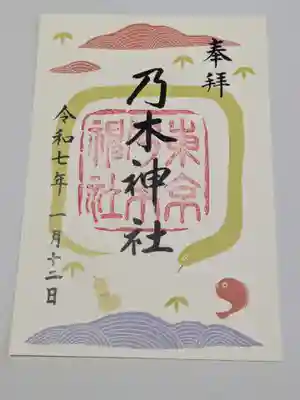 奉拝
乃木神社
令和七年 一月十二日
東京
乃木
神社